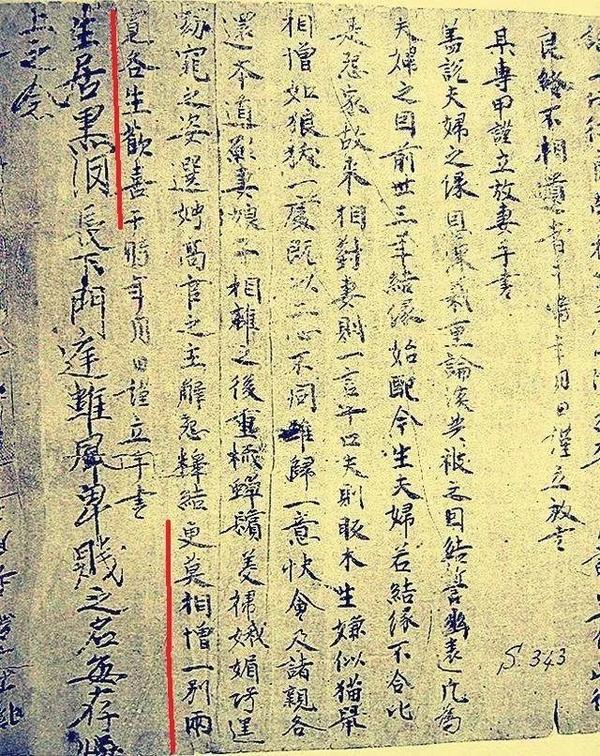 于時年月日謹立放書
某專甲謹立放妻手書
蓋說夫婦之緣恩深義重論談共被之因結誓幽遠凡為
夫婦之因前世三年結緣始配今生夫婦若結緣不合比
是怨家故來相對妻則一言十口夫則販木生嫌似猫鼠
相憎如狼狼一處既以二心不同難歸一意快會及諸親各
還本道願妻娘子相離之後重梳蟬鬢美掃娥媚巧逞
窈窕之姿選娉高官之主解怨釋結更莫相憎一別兩
寬各生歡喜于時年月日謹立手書
生居黑長下門庭雖卑賤之名每存
上之念
S.343